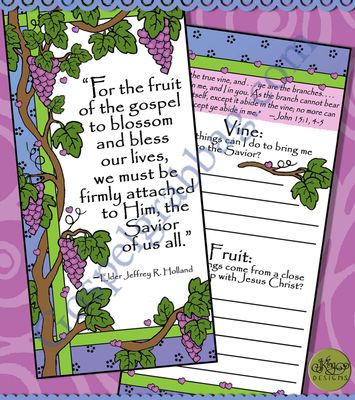 “For the fruit
of the gospel
to blossom
and bless
our lives,
we must be
firmly attached
to Him, the
Savior
of us all.”
—Elder Jeffrey R. Holland
the true vine, and . . . ye are the branches. . . .
in me, and I in you. As the branch cannot bear
itself, except it abide in the vine; no more can
except ye abide in me." —John 15:1, 4-5
Vine:
things can I do to bring me
to the Savior?
Fruit:
ngs come from a close
p with Jesus Christ?
DESIGNS